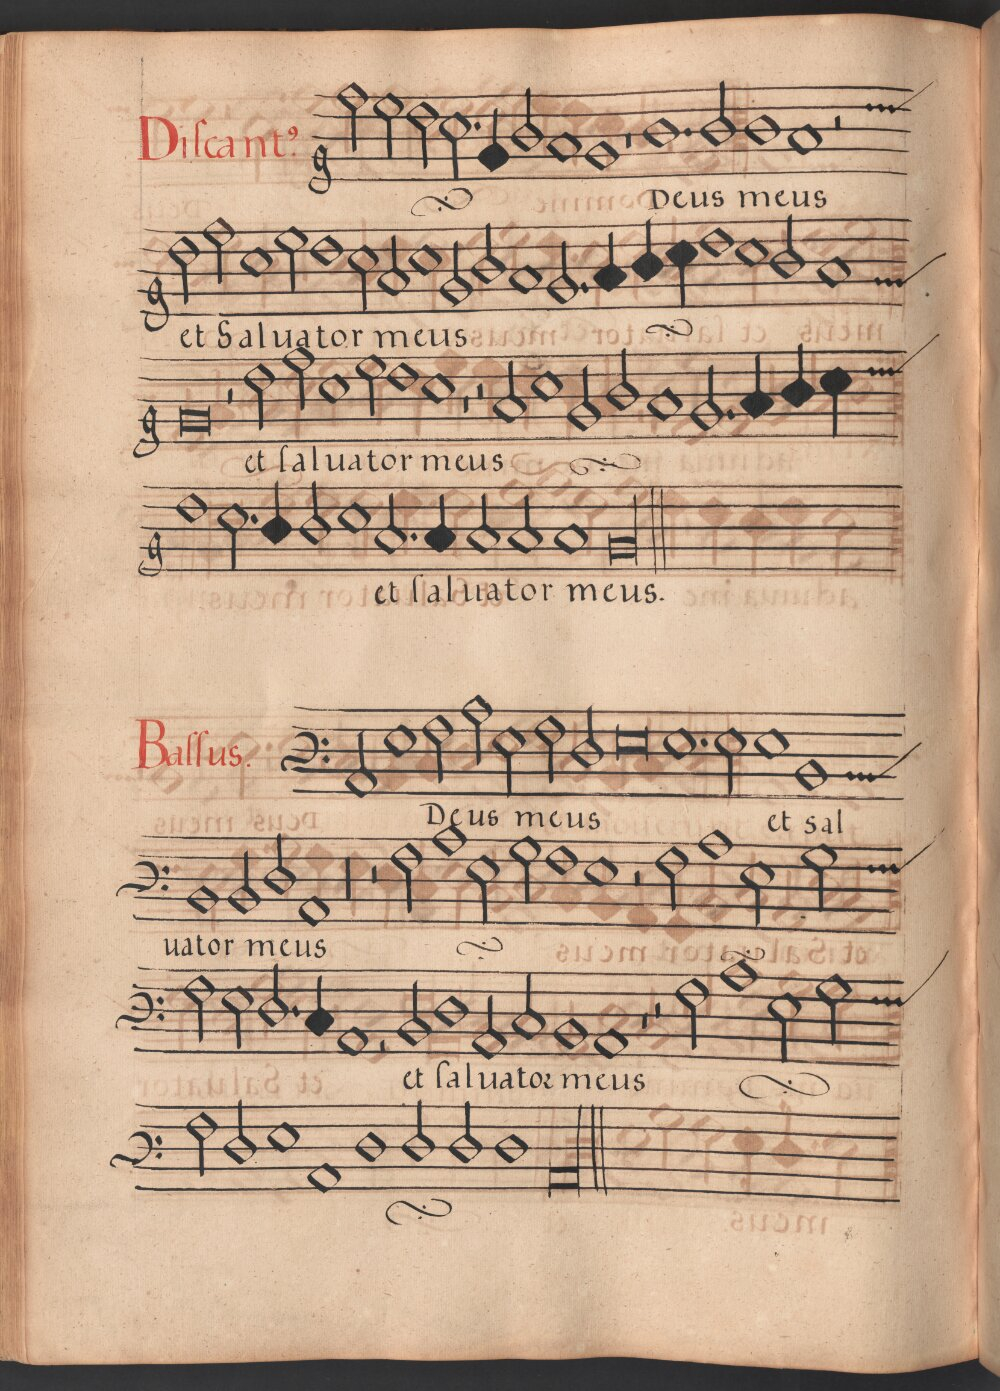 Discantꝰ.
Deus meus
et Saluator meus
et saluator meus
et saluator meus.
Bassus.
Deus meus et sal
uator meus
et saluator meus